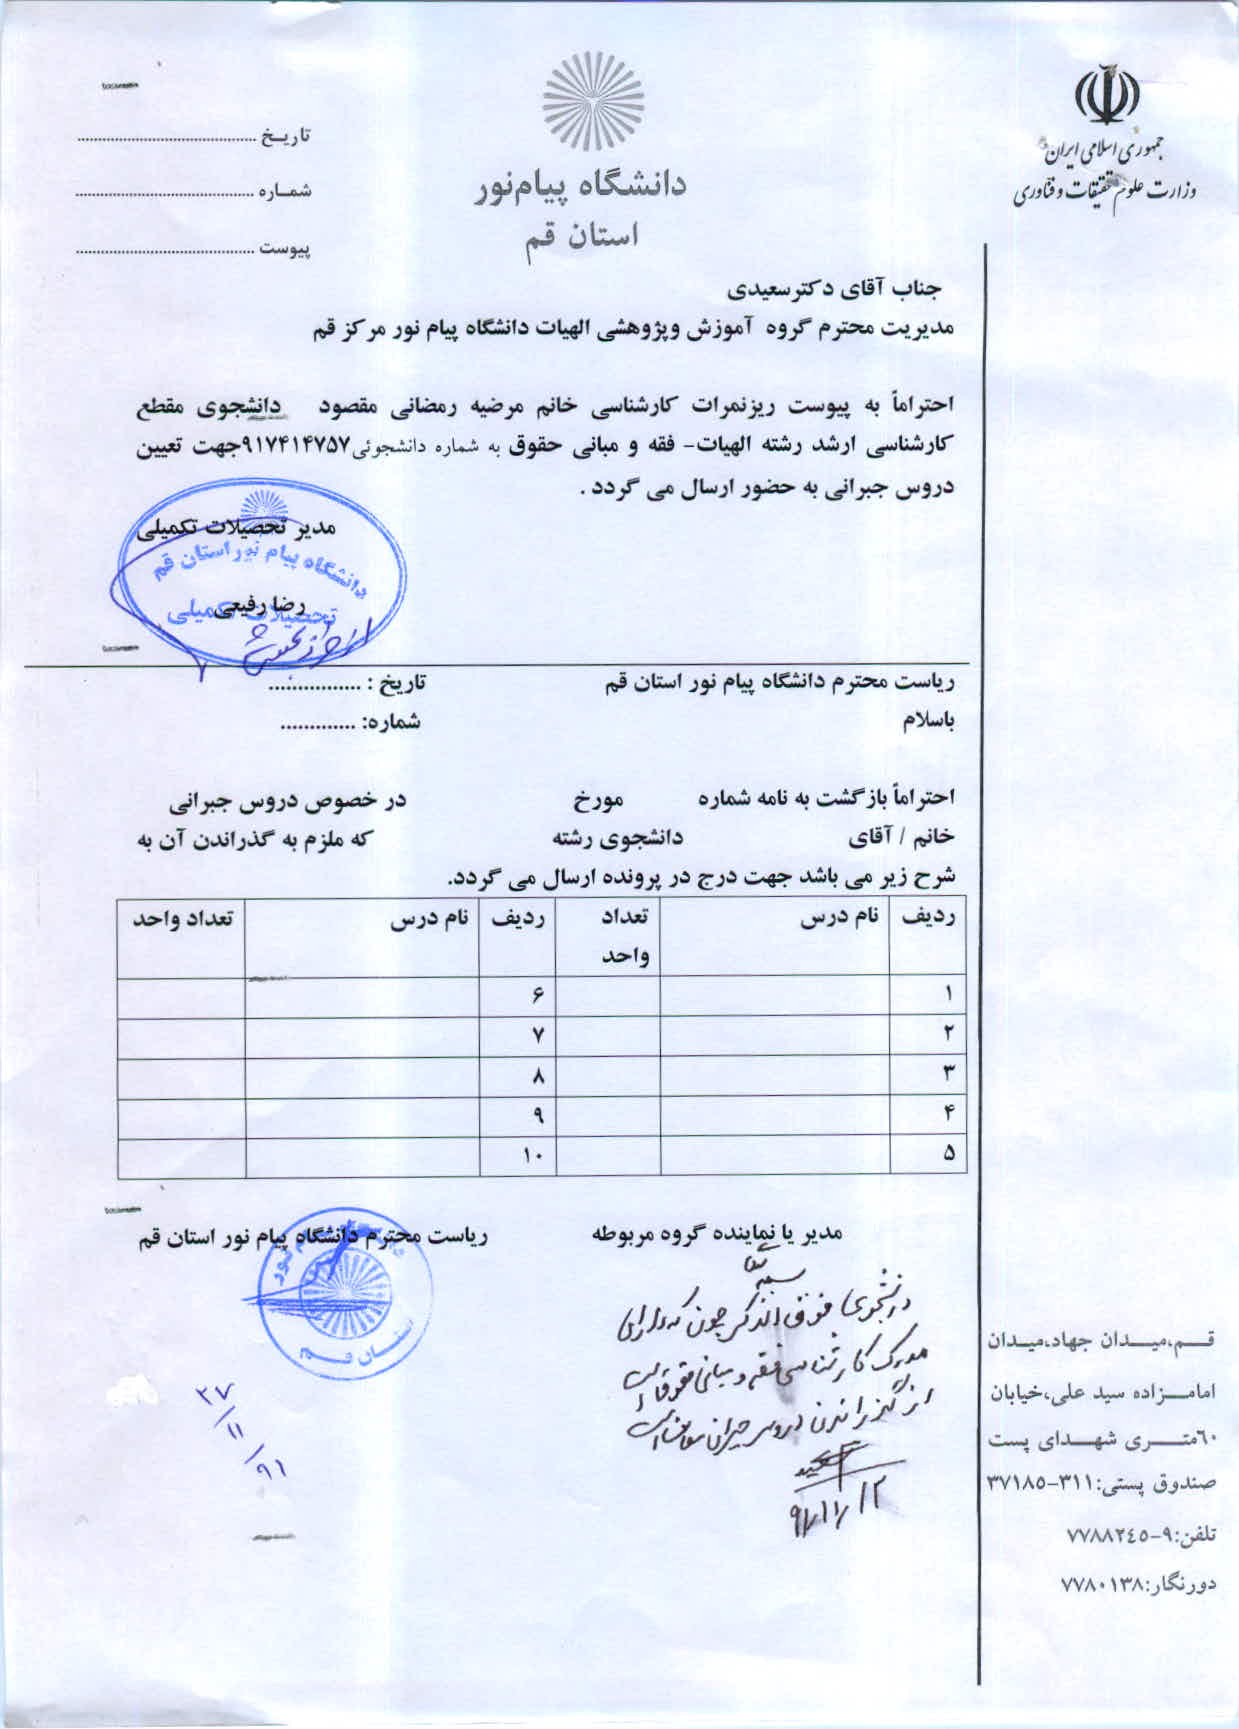 جمهوری اسلامی ایران
وزارت علوم تحقیقات و فناوری
دانشگاه پیام‌نور
استان قم
تاریـخ ........................................
شمـاره ........................................
پیوست ........................................
جناب آقای دکترسعیدی
مدیریت محترم گروه آموزش وپژوهشی الهیات دانشگاه پیام نور مرکز قم
احتراماً به پیوست ریزنمرات کارشناسی خانم مرضیه رمضانی مقصود دانشجوی مقطع
کارشناسی ارشد رشته الهیات- فقه و مبانی حقوق به شماره دانشجوئی۹۱۷۴۱۴۷۵۷جهت تعیین
دروس جبرانی به حضور ارسال می گردد .
مدیر تحصیلات تکمیلی
دانشگاه پیام نور استان قم
رضا رفیعی
تحصیلات تکمیلی
ریاست محترم دانشگاه پیام نور استان قم تاریخ : ................
باسلام شماره: .............
احتراماً بازگشت به نامه شماره مورخ در خصوص دروس جبرانی
خانم / آقای دانشجوی رشته که ملزم به گذراندن آن به
شرح زیر می باشد جهت درج در پرونده ارسال می گردد.
ردیف نام درس تعداد واحد ردیف نام درس تعداد واحد
۱ ۶
۲ ۷
۳ ۸
۴ ۹
۵ ۱۰
مدیر یا نماینده گروه مربوطه ریاست محترم دانشگاه پیام نور استان قم
استان قم
دانشجوی فوق الذکر چون که دارای
مدرک کارشناسی فقه و مبانی حقوق است
از گذراندن دروس جبرانی معاف است
۹۱/۱۱/۱۲
۹۱/۱۱/۲۷
قـم،میـدان جهاد،میـدان
امامـزاده سید علی،خیابان
۶۰متـری شهـدای پست
صندوق پستی:۳۱۱-۳۷۱۸۵
تلفن:۹-۷۷۸۸۲٤٥
دورنگار:۷۷۸۰۱۳۸